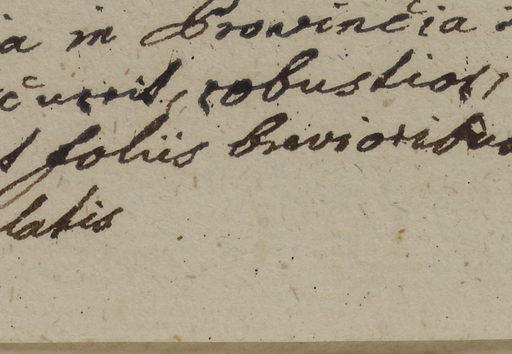 a in Provincia
currit, robustior,
foliis brevioribus
latis